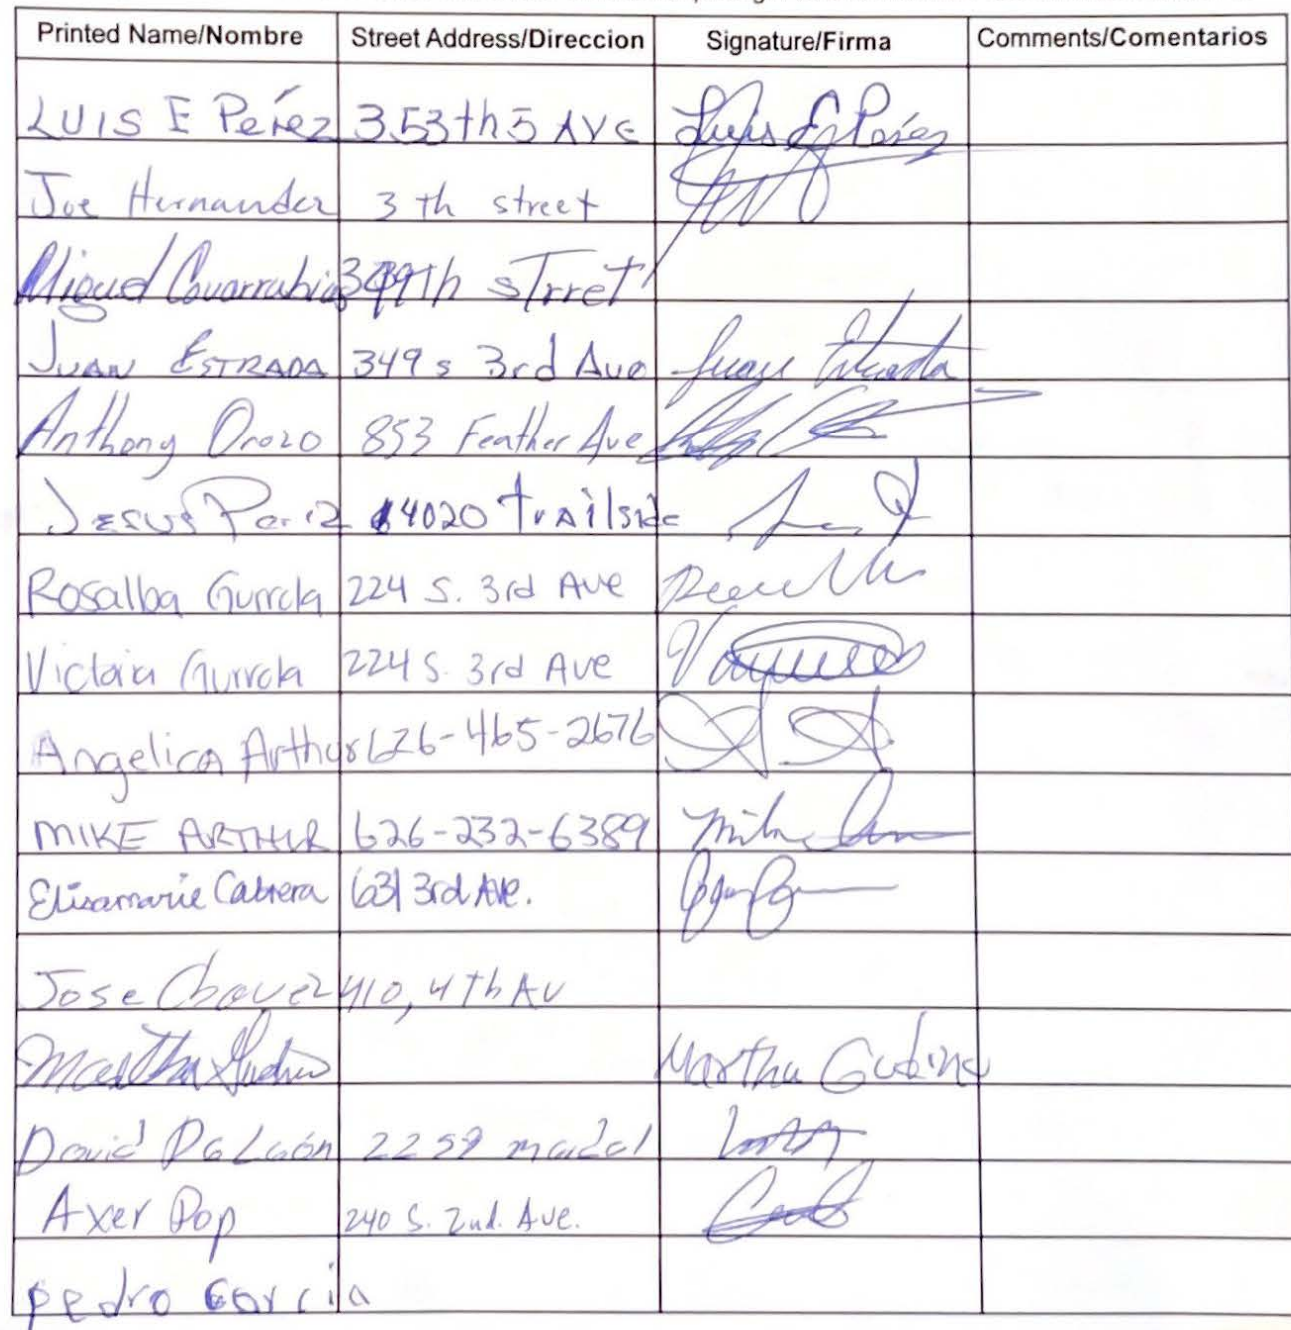 Printed Name/Nombre Street Address/Direccion Signature/Firma Comments/Comentarios
LUIS E Peréz 353th5 AVE Luis E Peréz
Joe Hernandez 3 th street
Miguel Covarrubias 349th sTrret
JUAN ESTRADA 349 s 3rd Ave Juan Estrada
Anthony Orozo 853 Feather Ave
Jesus Periz 14020 trailside
Rosalba Gurrola 224 S. 3rd Ave
Victoria Gurrola 224 S. 3rd Ave
Angelica Arthur 626-465-2676
MIKE ARTHUR 626-232-6389
Elisamarie Cabrera 631 3rd Ave.
Jose Chavez 410, 4th AV
Martha Gudino Martha Gudino
David DeLeón 2259
Axer Pop 240 S. 2nd. Ave.
pedro Garcia